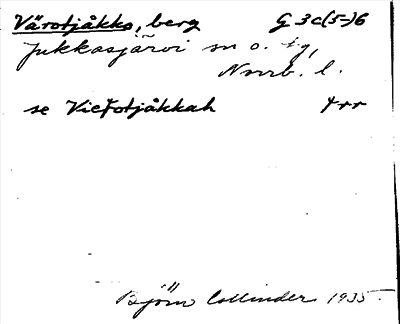 Värotjåkko, berg G 3c(5-)6
Jukkasjärvi sn o. tg,
Norrb. l.
se Vieřotjåkkah 4 rr
Björn Collinder 1935.